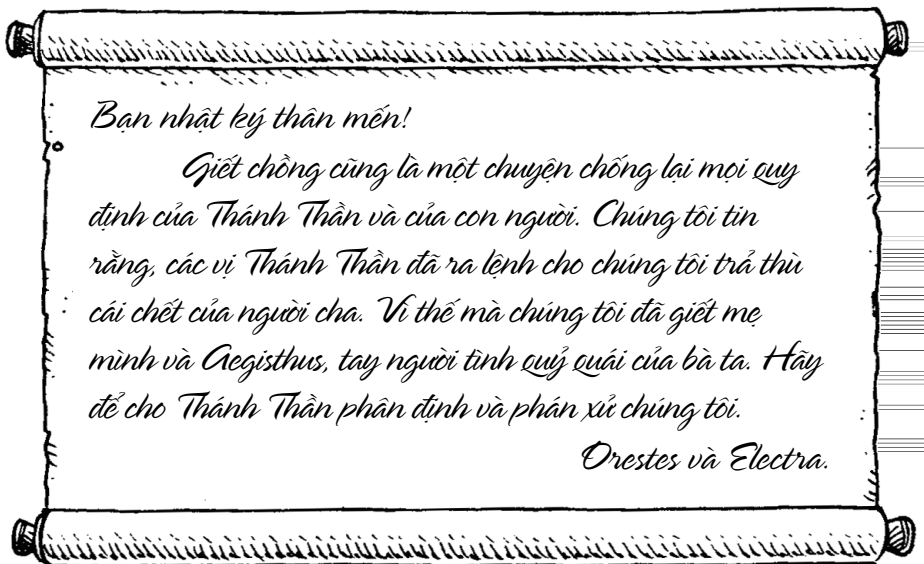 Bạn nhật ký thân mến!
Giết chồng cũng là một chuyện chống lại mọi quy
định của Thánh Thần và của con người. Chúng tôi tin
rằng, các vị Thánh Thần đã ra lệnh cho chúng tôi trả thù
cái chết của người cha. Vì thế mà chúng tôi đã giết mẹ
mình và Aegisthus, tay người tình quỷ quái của bà ta. Hãy
để cho Thánh Thần phân định và phán xử chúng tôi.
Orestes và Electra.